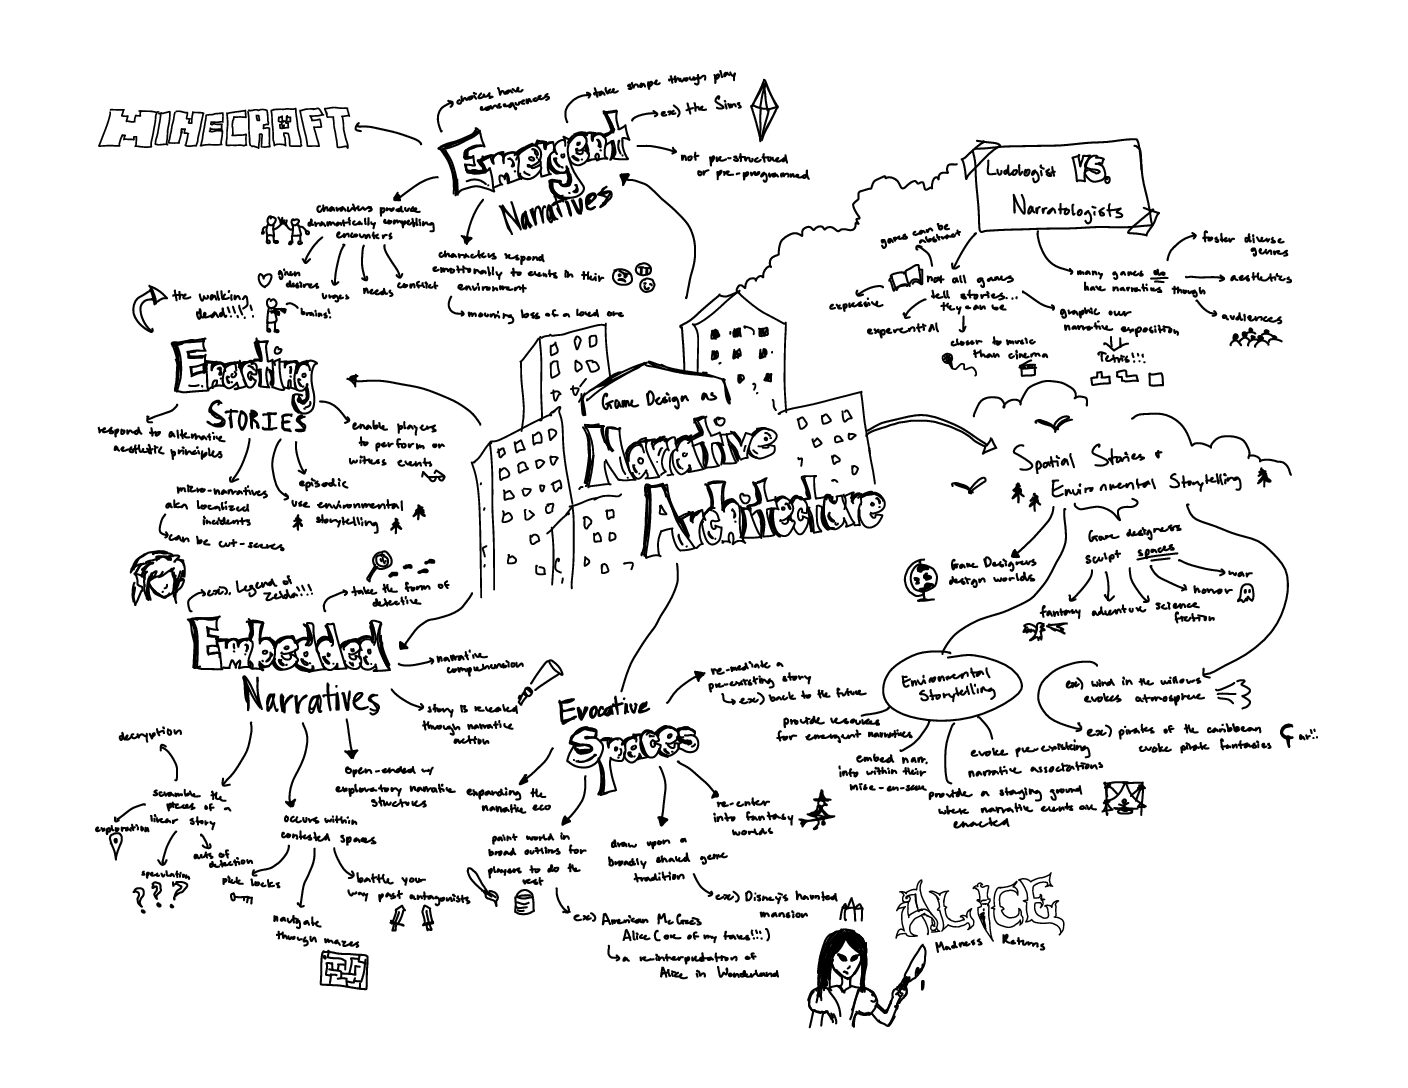 MINECRAFT
choices have
consequences
take shape through play
ex) the Sims
not pre-structured
or pre-programmed
Emergent
Narratives
characters produce
dramatically compelling
encounters
given
desires
urges
needs
conflict
brains!
characters respond
emotionally to events in their
environment
mourning loss of a loved one
Ludologist VS.
Narratologists
games can be
abstract
not all games
tell stories...
they can be
expressive
experential
closer to music
than cinema
graphic over
narrative exposition
Tetris!!!
many games do
have narratives though
foster diverse
genres
aesthetics
audiences
the walking
dead!!!!
Enacting
STORIES
respond to alternative
aesthetic principles
enable players
to perform or
witness events
micro-narratives
aka localized
incidents
can be cut-scenes
episodic
use environmental
storytelling
Game Design as
Narrative
Architecture
Spatial Stories &
Environmental Storytelling
Game Designers
design worlds
Game designers
sculpt spaces
fantasy
adventure
science
fiction
horror
war
Environmental
Storytelling
provide resources
for emergent narratives
embed narr.
info within their
mise-en-scene
provide a staging ground
where narrative events are
enacted
evoke pre-existing
narrative associations
ex) wind in the willows
evokes atmosphere
ex) pirates of the caribbean
evoke pirate fantasies
ar!!
ex). Legend of
Zelda!!!
take the form of
detective
Embedded
Narratives
narrative
comprehension
story is revealed
through narrative
action
decryption
scramble the
pieces of a
linear story
exploration
speculation
???
acts of
detection
open-ended w/
exploratory narrative
structures
occurs within
contested spaces
pick locks
navigate
through mazes
battle your
way past antagonists
Evocative
Spaces
re-mediate a
pre-existing story
ex) back to the future
expanding the
narrative eco
paint world in
broad outlines for
players to do the
rest
draw upon a
broadly shared genre
tradition
re-enter
into fantasy
worlds
ex) Disney's haunted
mansion
ex) American McGee's
Alice (one of my faves!!!)
a re-interpretation of
Alice in Wonderland
ALICE
Madness Returns